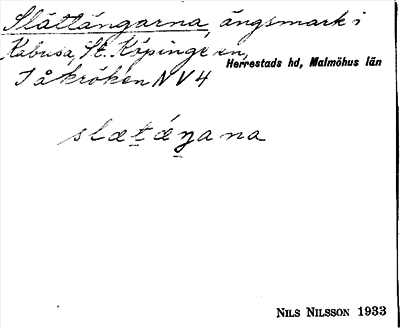 Slättängarna, ängsmark i
Kabusa, St. Köpinge sn,
Herrestads hd, Malmöhus län
I åkröken NV4
slætæŋana
NILS NILSSON 1933